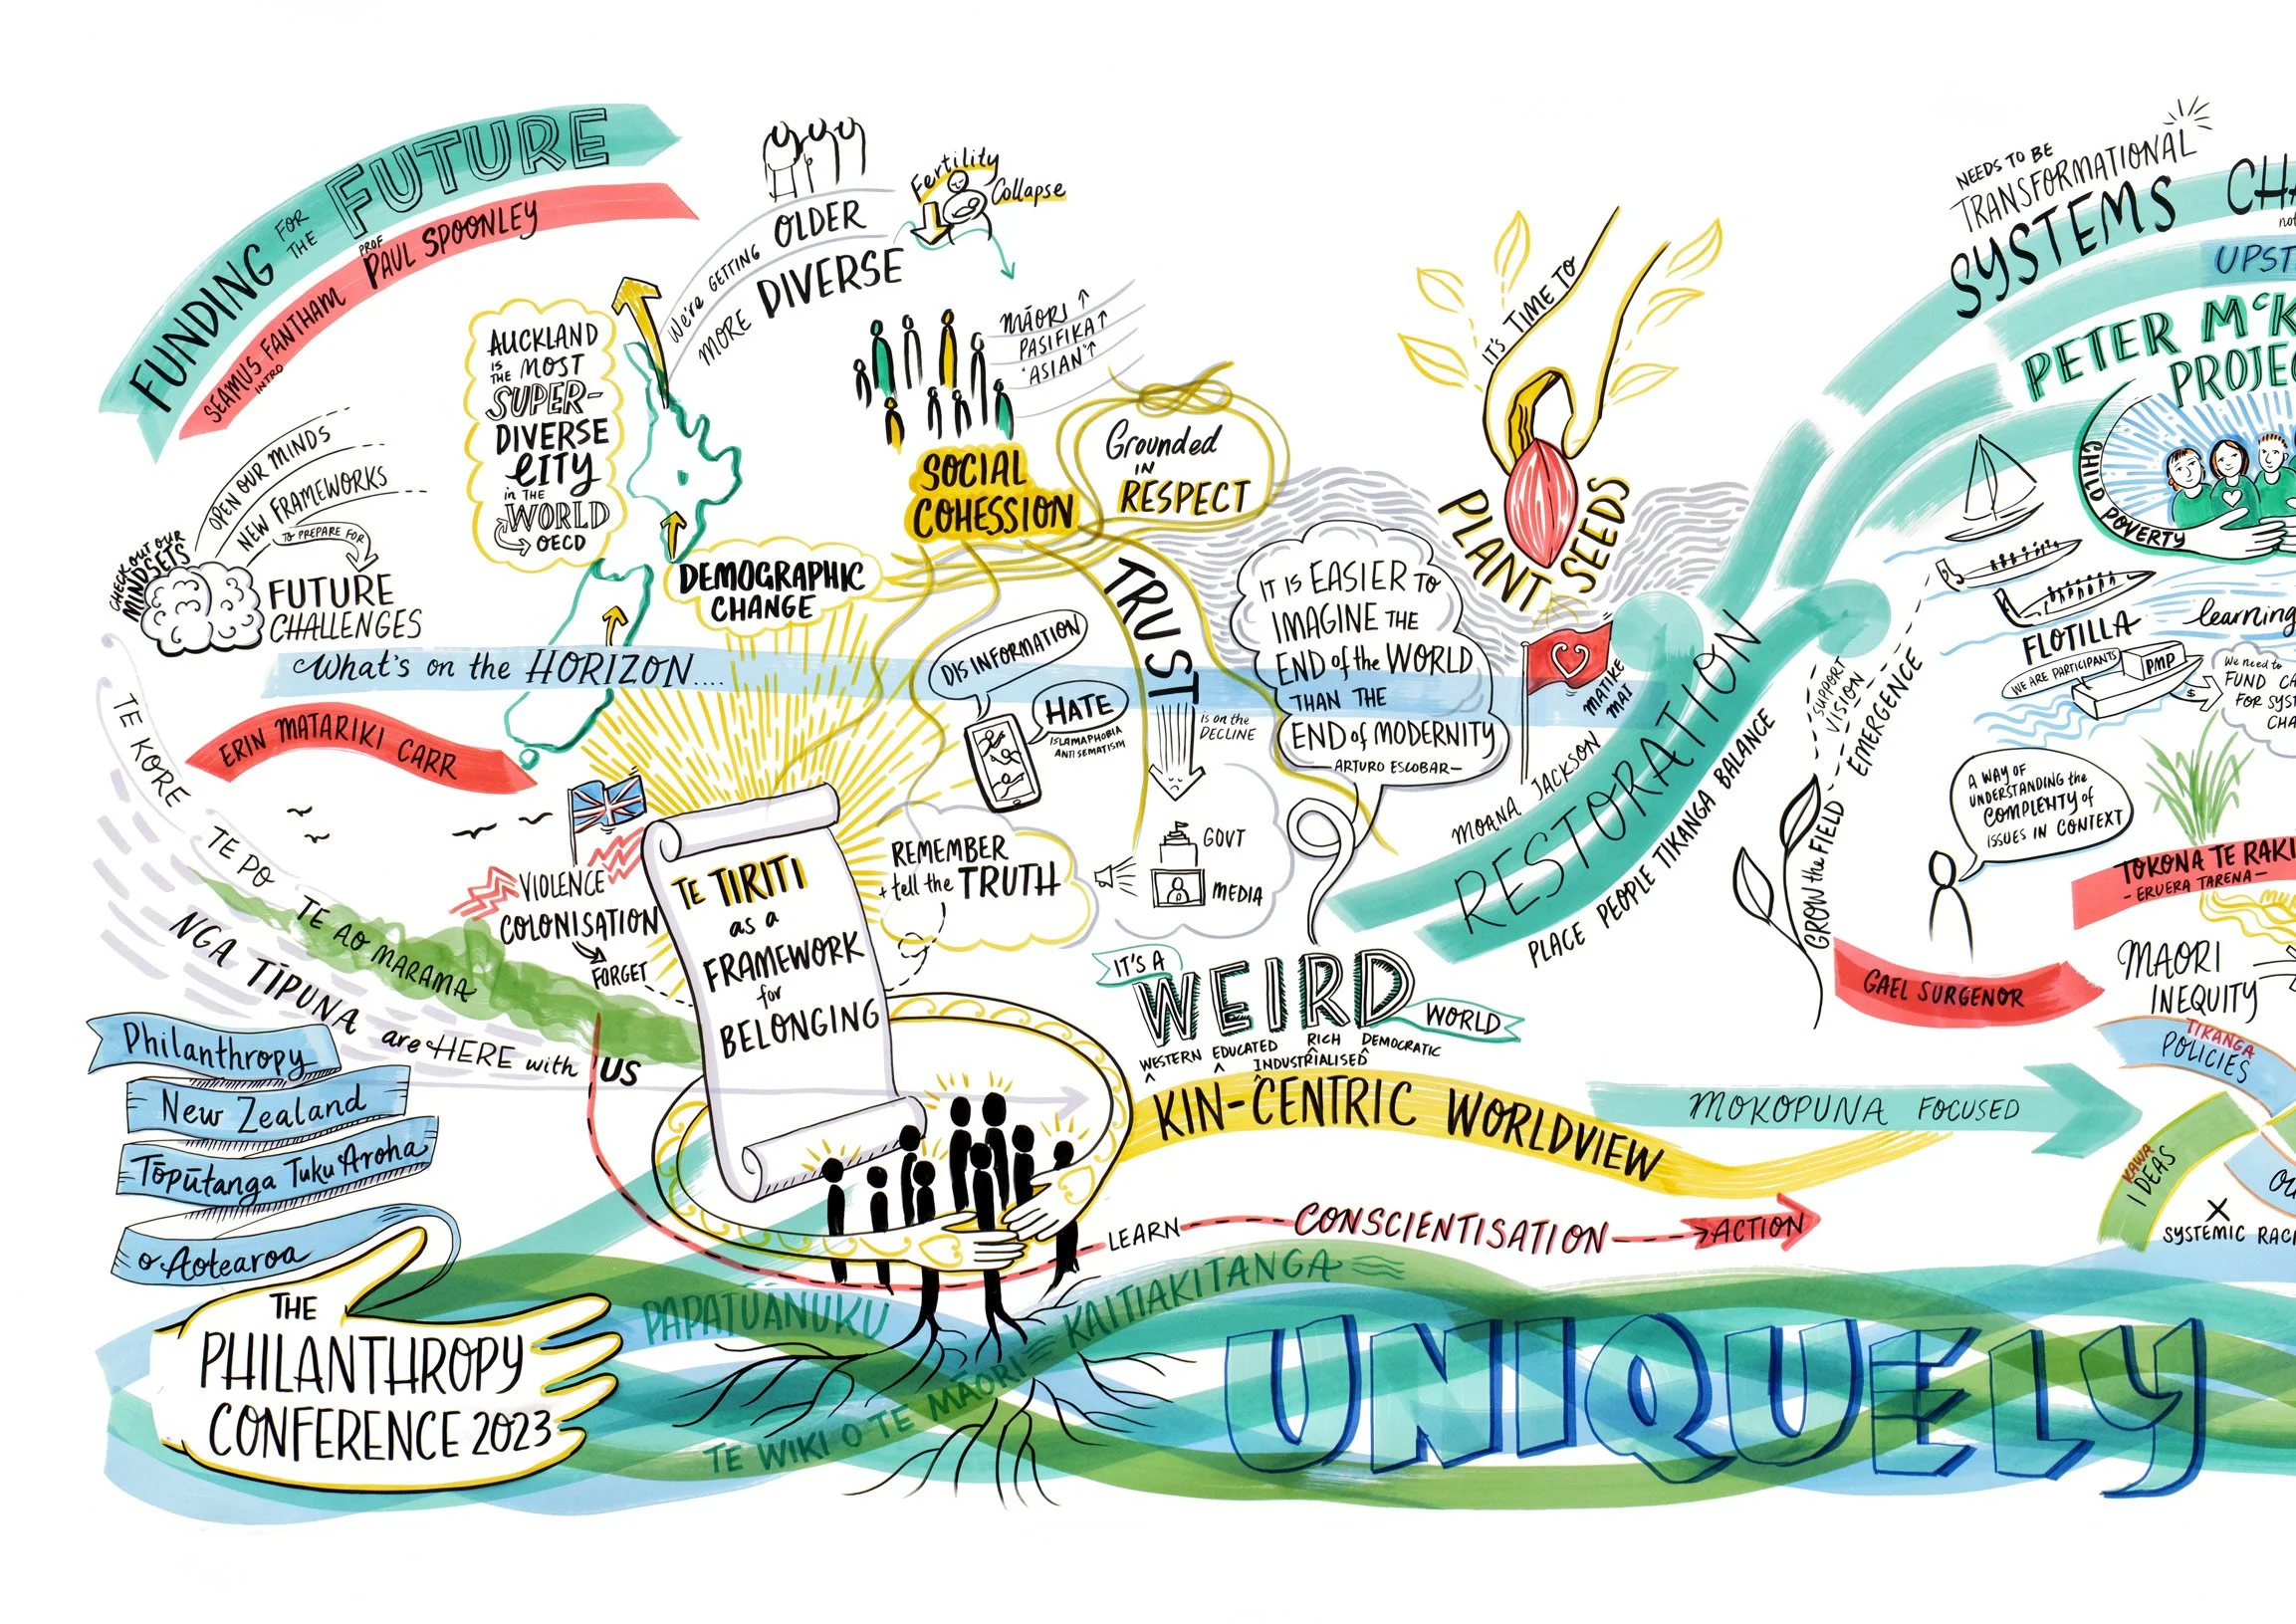 FUNDING FOR THE FUTURE
SEAMUS FANTHAM INTRO PROF PAUL SPOONLEY
CHECK OUT OUR MINDSETS
OPEN OUR MINDS
NEW FRAMEWORKS
TO PREPARE FOR
FUTURE
CHALLENGES
AUCKLAND
IS THE MOST
SUPER-
DIVERSE
CITY
in THE
WORLD
OECD
We're GETTING OLDER
MORE DIVERSE
Fertility
Collapse
MĀORI ↑
PASIFIKA ↑
"ASIAN" ↑
SOCIAL
COHESSION
Grounded
IN
RESPECT
DEMOGRAPHIC
CHANGE
What's on the HORIZON....
DISINFORMATION
HATE
ISLAMAPHOBIA
ANTISEMATISM
TRUST
is on the
DECLINE
GOVT
MEDIA
IT IS EASIER TO
IMAGINE THE
END of the WORLD
THAN THE
END of MODERNITY
—ARTURO ESCOBAR—
IT'S TIME TO
PLANT SEEDS
ERIN MATARIKI CARR
TE KORE
TE PO
TE AO MARAMA
NGA TĪPUNA are HERE with US
VIOLENCE
COLONISATION
FORGET
TE TIRITI
as a
FRAMEWORK
for
BELONGING
REMEMBER
+ tell the TRUTH
IT'S A
WEIRD
WORLD
WESTERN EDUCATED INDUSTRIALISED RICH DEMOCRATIC
KIN-CENTRIC WORLDVIEW
MOKOPUNA FOCUSED
LEARN CONSCIENTISATION ACTION
MATIKE
MAI
MOANA JACKSON
RESTORATION
PLACE PEOPLE TIKANGA BALANCE
NEEDS TO BE
TRANSFORMATIONAL
SYSTEMS
PETER
CHILD POVERTY
FLOTILLA
learning
WE ARE PARTICIPANTS
PMP
$
We need to
FUND
FOR
SUPPORT
VISION
EMERGENCE
GROW the FIELD
A WAY OF
UNDERSTANDING the
COMPLEXITY of
ISSUES IN CONTEXT
GAEL SURGENOR
TOKONA TE RAKI
- ERUERA TARENA -
MAORI
INEQUITY
TIKANGA
POLICIES
KAWA
IDEAS
SYSTEMIC
Philanthropy
New Zealand
Tōpūtanga Tuku Aroha
o Aotearoa
THE
PHILANTHROPY
CONFERENCE 2023
PAPATŪĀNUKU
TE WIKI O TE MĀORI
KAITIAKITANGA
UNIQUELY